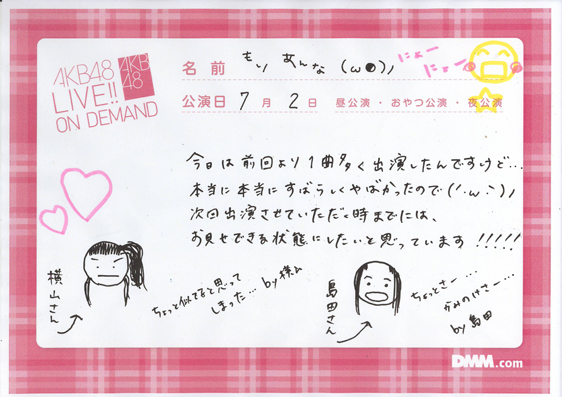 AKB48
LIVE!!
ON DEMAND
AKB
48
名前 もり あんな (ω●)ノ
にょー
にょー
公演日 7月 2日 昼公演・おやつ公演・夜公演
今日は前回より1曲多く出演したんですけど…
本当に本当にすばらしくやばかったので(´・ω・`)ノ
次回出演させていただく時までには、
お見せできる状態にしたいと思っています!!!!!
横山さん
ちょっと似てると思って
しまった… by横山
島田さん
ちょっとさー…
かみのけさー…
by 島田
DMM.com